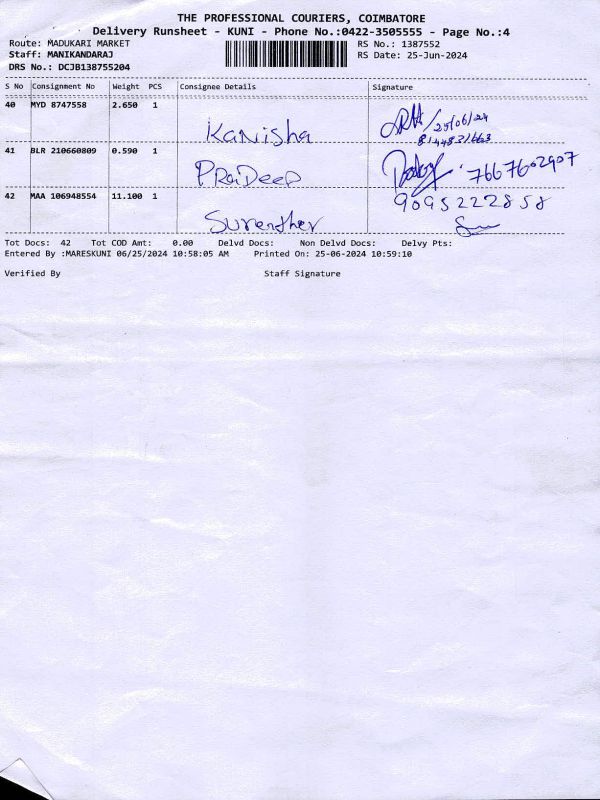 THE PROFESSIONAL COURIERS, COIMBATORE
Delivery Runsheet - KUNI - Phone No.:0422-3505555 - Page No.:4
Route: MADUKARI MARKET RS No.: 1387552
Staff: MANIKANDARAJ RS Date: 25-Jun-2024
DRS No.: DCJB138755204
S No Consignment No Weight PCS Consignee Details Signature
40 MYD 8747558 2.650 1
Kanisha 25/06/24
8144831663
41 BLR 210660809 0.590 1
PRaDeep 7667602907
42 MAA 106948554 11.100 1 9095222858
Surendher
Tot Docs: 42 Tot COD Amt: 0.00 Delvd Docs: Non Delvd Docs: Delvy Pts:
Entered By :MARESKUNI 06/25/2024 10:58:05 AM Printed On: 25-06-2024 10:59:10
Verified By Staff Signature